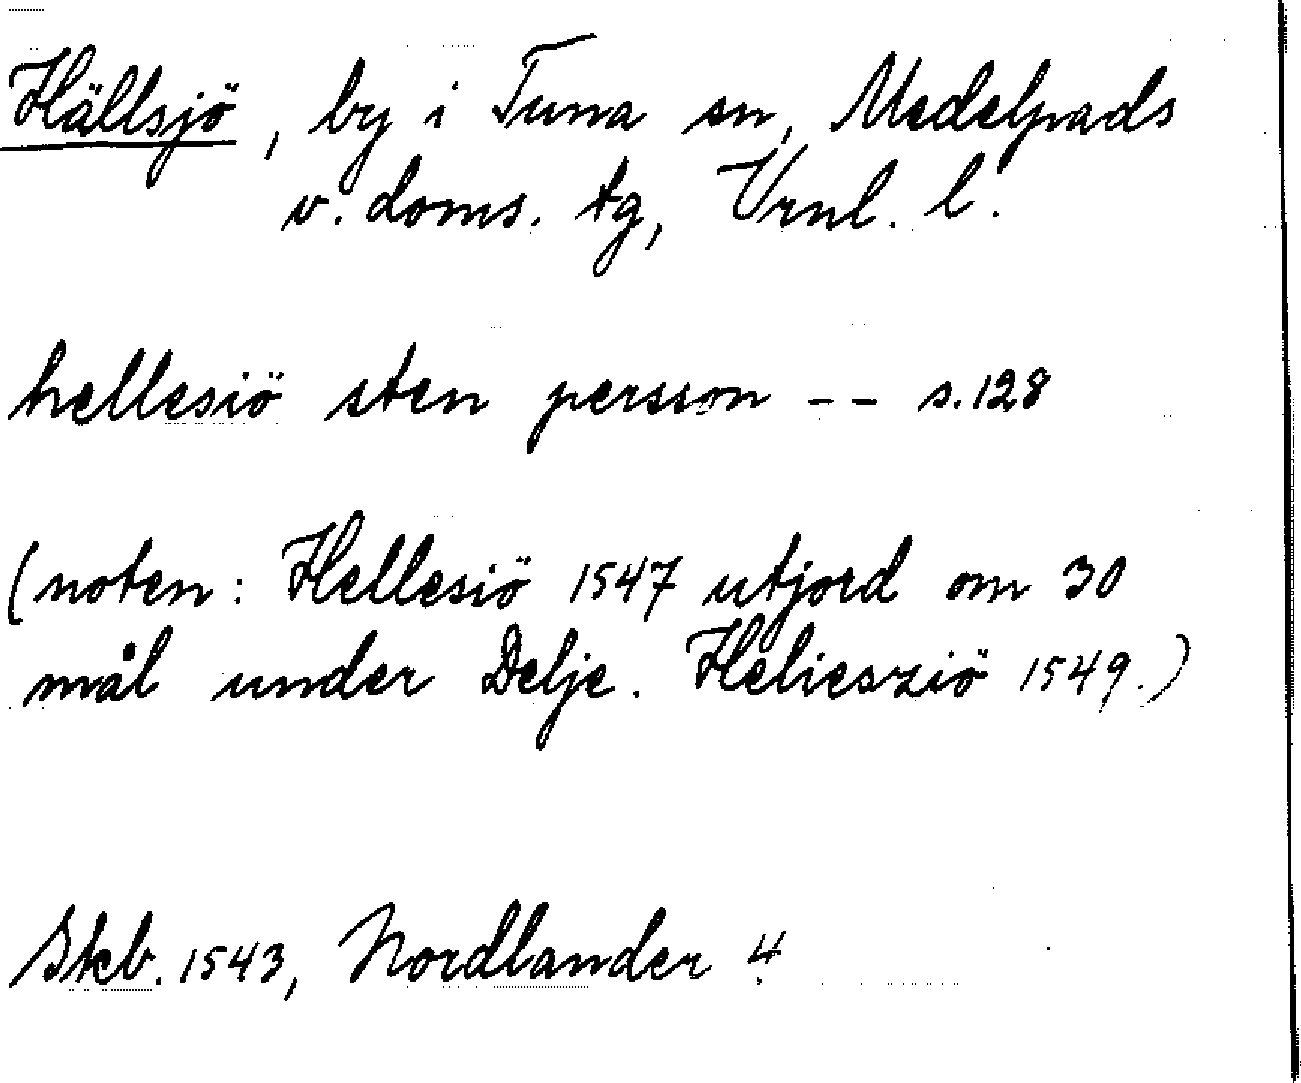 Hällsjö, by i Tuna sn, Medelpads
v. doms. tg, Vrnl. l.
hellesiö sten persson -- s. 128
(noten: Hellesiö 1547 utjord om 30
mål under Delje. Heliesziö 1549.)
Skb. 1543, Nordlander 4.